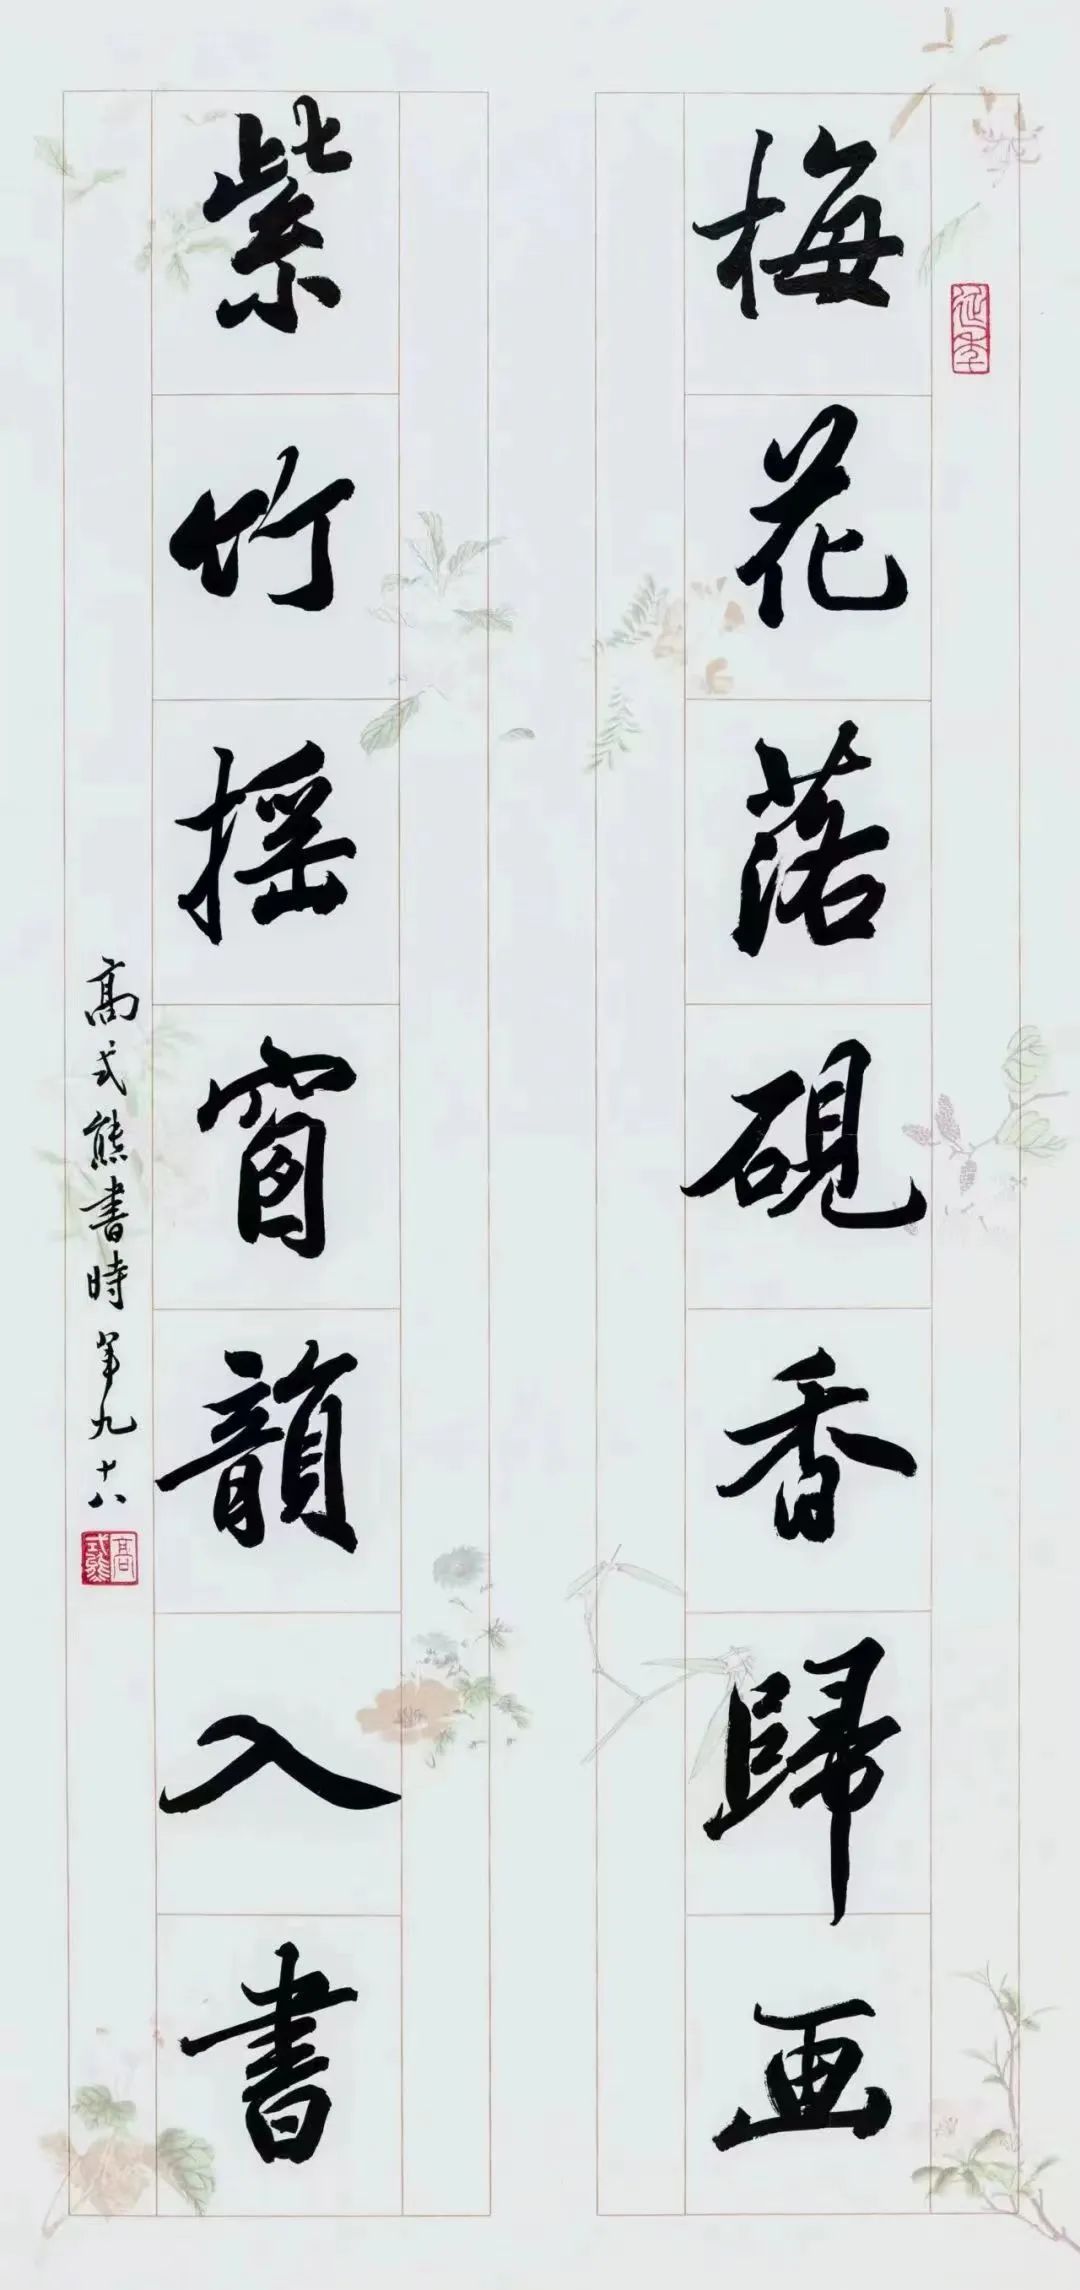 梅花落硯香歸画
紫竹搖窗韻入書
高式熊書時年九十八
高式熊